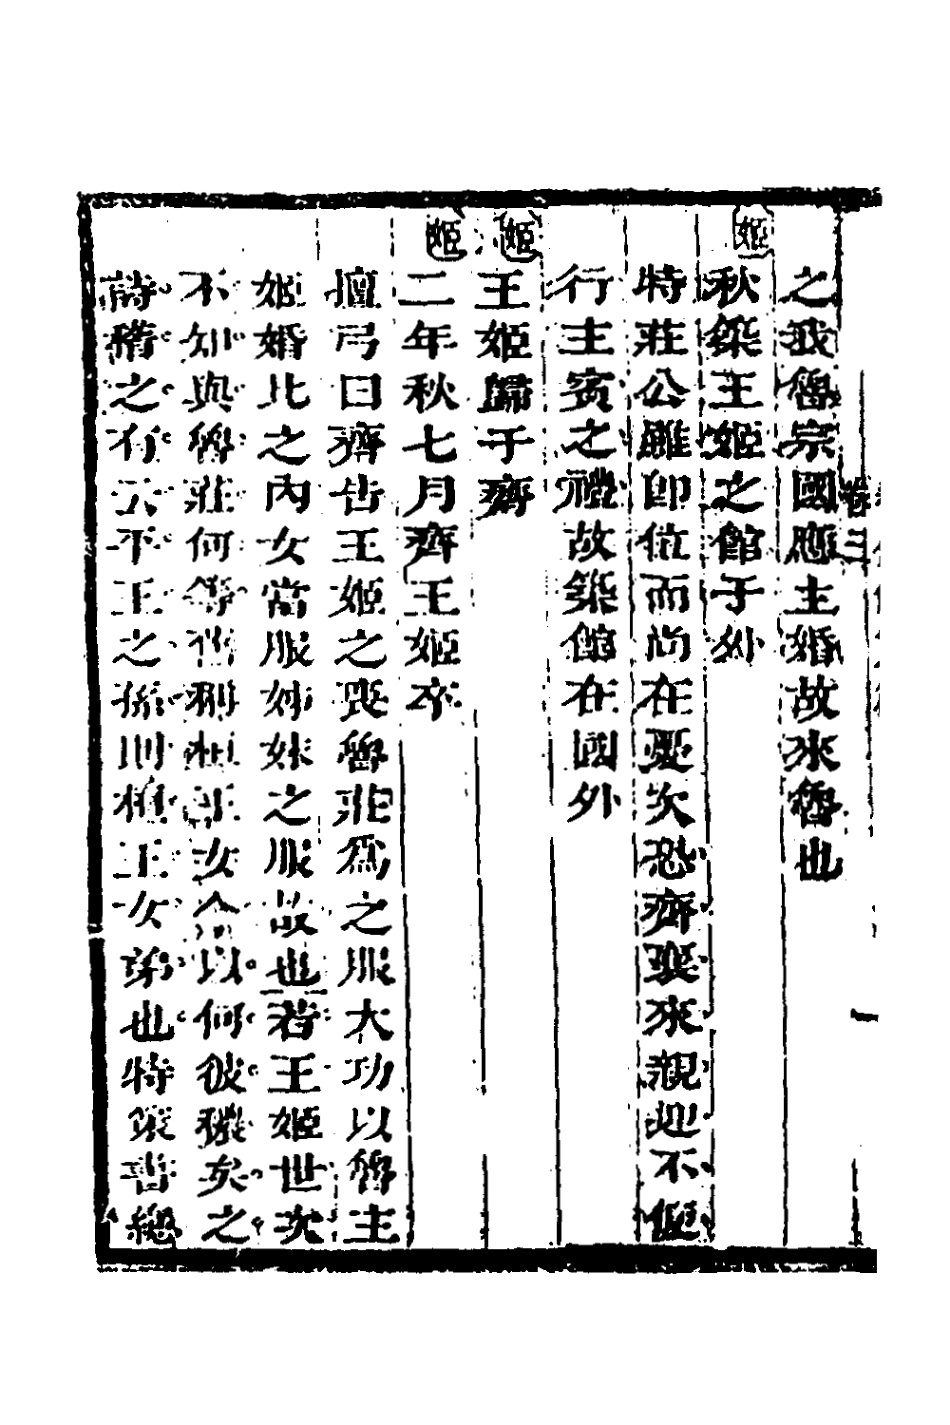 之我魯宗國應主婚故來魯也
姬
秋築王姬之館于外
特莊公雖即位而尚在憂次恐齊襄來親迎不便
行主賓之禮故築館在國外
姬
王姬歸于齊
姬
二年秋七月齊王姬卒
檀弓曰齊告王姬之喪魯莊爲之服大功以魯主
姬婚比之內女當服姊妹之服故也若王姬世次
不知與魯莊何等當稱桓王女今以何彼穠矣之
詩稽之有云平王之孫則桓王女弟也特策書總
卷三